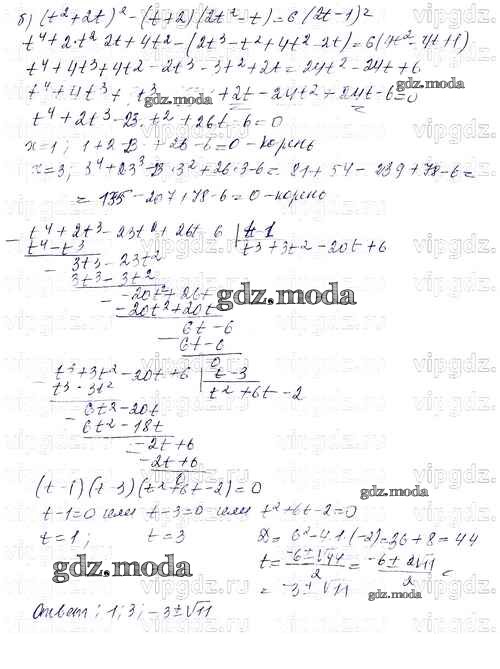 б) (t²+2t)² - (t+2)(2t²-t) = 6(2t-1)²
t⁴+2·t²·2t+4t² - (2t³-t²+4t²-2t) = 6(4t²-4t+1)
t⁴+4t³+4t²-2t³-3t²+2t = 24t²-24t+6
t⁴+4t³ t³ +2t-24t²+24t-6=0
gdz.moda
t⁴+2t³-23t²+26t-6=0
x=1; 1+2-23+26-6=0 - корень
x=3; 3⁴+2·3³-23·3²+26·3-6 = 81+54-239+78-6=
= 135-207+78-6=0 - корень
t⁴+2t³-23t²+26t-6 | t-1
t⁴-t³ t³+3t²-20t+6
3t³-23t²
3t³-3t²
-20t²+26t
gdz.moda
-20t²+20t
6t-6
6t-6
0
t³+3t²-20t+6 | t-3
t³-3t² t²+6t-2
6t²-20t
6t²-18t
-2t+6
-2t+6
0
(t-1)(t-3)(t²+6t-2)=0
t-1=0 или t-3=0 или t²+6t-2=0
t=1; t=3 D=6²-4·1·(-2)=36+8=44
t=(-6±√44)/2=(-6±2√11)/2=
gdz.moda
=-3±√11
gdz.moda
Ответ: 1; 3; -3±√11
vipgdz.ru